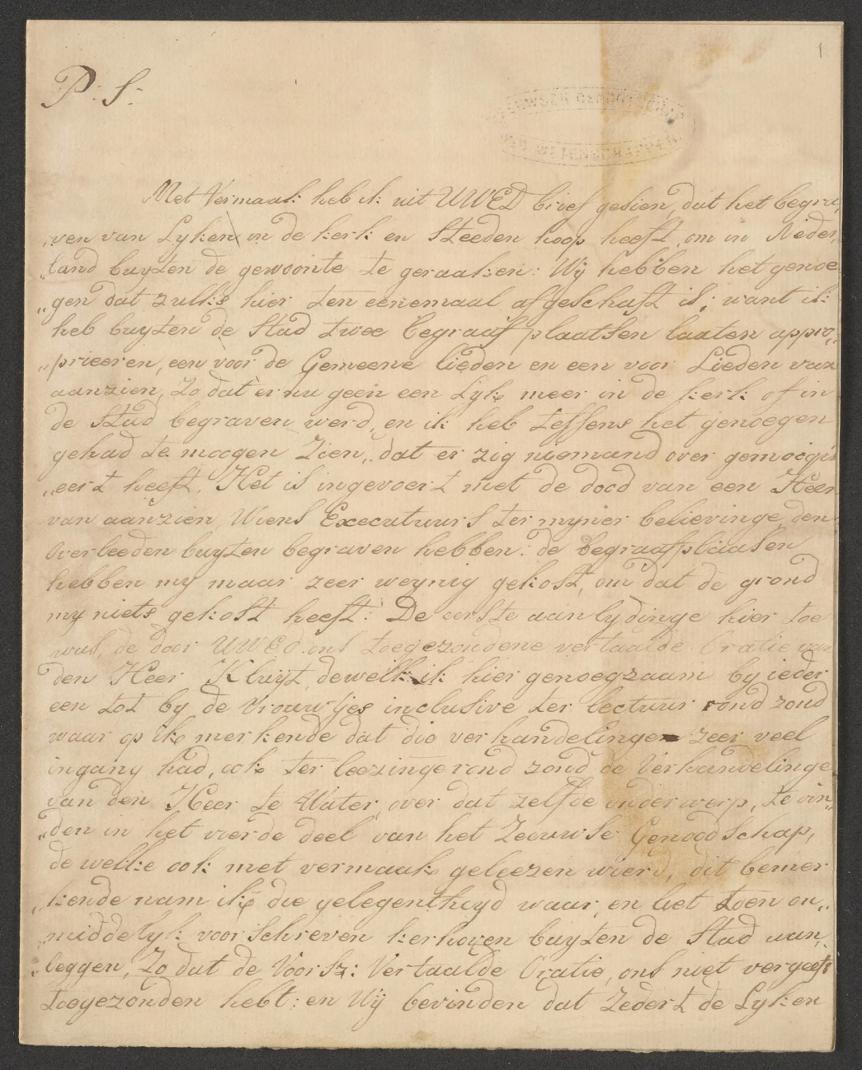 1
P: S:
ZEEUWSCH GENOOTSCHAP
DER WETENSCHAPPEN
Met Vermaak heb ik uit UWED brief gesien, dat het begra,,
,,ven van Lyken in de kerk en Steeden hoop heeft, om in Neder,,
,,land buyten de gewoonte te geraaken: Wy hebben het genoe
,,gen dat zulks hier ten eenemaal afgeschaft is; want ik
heb buyten de Stad twee begraafplaatsen laaten appro,,
,,prieeren, een voor de Gemeene lieden en een voor Lieden van
aanzien, Zo dat er nu geen een Lyk meer in de kerk of in
de Stad begraven werd, en ik heb teffens het genoegen
gehad te moogen Zien, dat er zig niemand over gemoogi
,,eert heeft. Het is ingevoert met de dood van een Heer
van aanzien, Wiens Executeurs ter myner believinge den
Overleeden buyten begraven hebben: de begraafplaasen
hebben my maar zeer weynig gekost, om dat de grond
my niets gekost heeft: De eerste aanlydinge hier toe
was, de door UWED ons toegezondene vertaalde Oratie van
den Heer Kluyt, dewelk ik hier genoegzaam by ieder
een tot by de Vrouwtjes inclusive ter lectuur rond zond
waar op ik merkende dat die verhandelingen zeer veel
ingang had, ook ter leezinge rond zond de Verhandelinge
van den Heer te Water, over dat zelfde onderwerp, te vin,,
,,den in het vierde deel van het Zeeuwse Genoodschap,
de welke ook met vermaak geleezen wierd, dit bemer
,,kende nam ik die gelegentheyd waar, en liet toen on,,
,,middelyk voorschreven kerhoven buyten de Stad aan,,
,,leggen, Zo dat de Voorsz: Vertaalde Oratie, ons niet vergeefs
toegezonden hebt: en Wy bevinden dat Zedert de Lyken